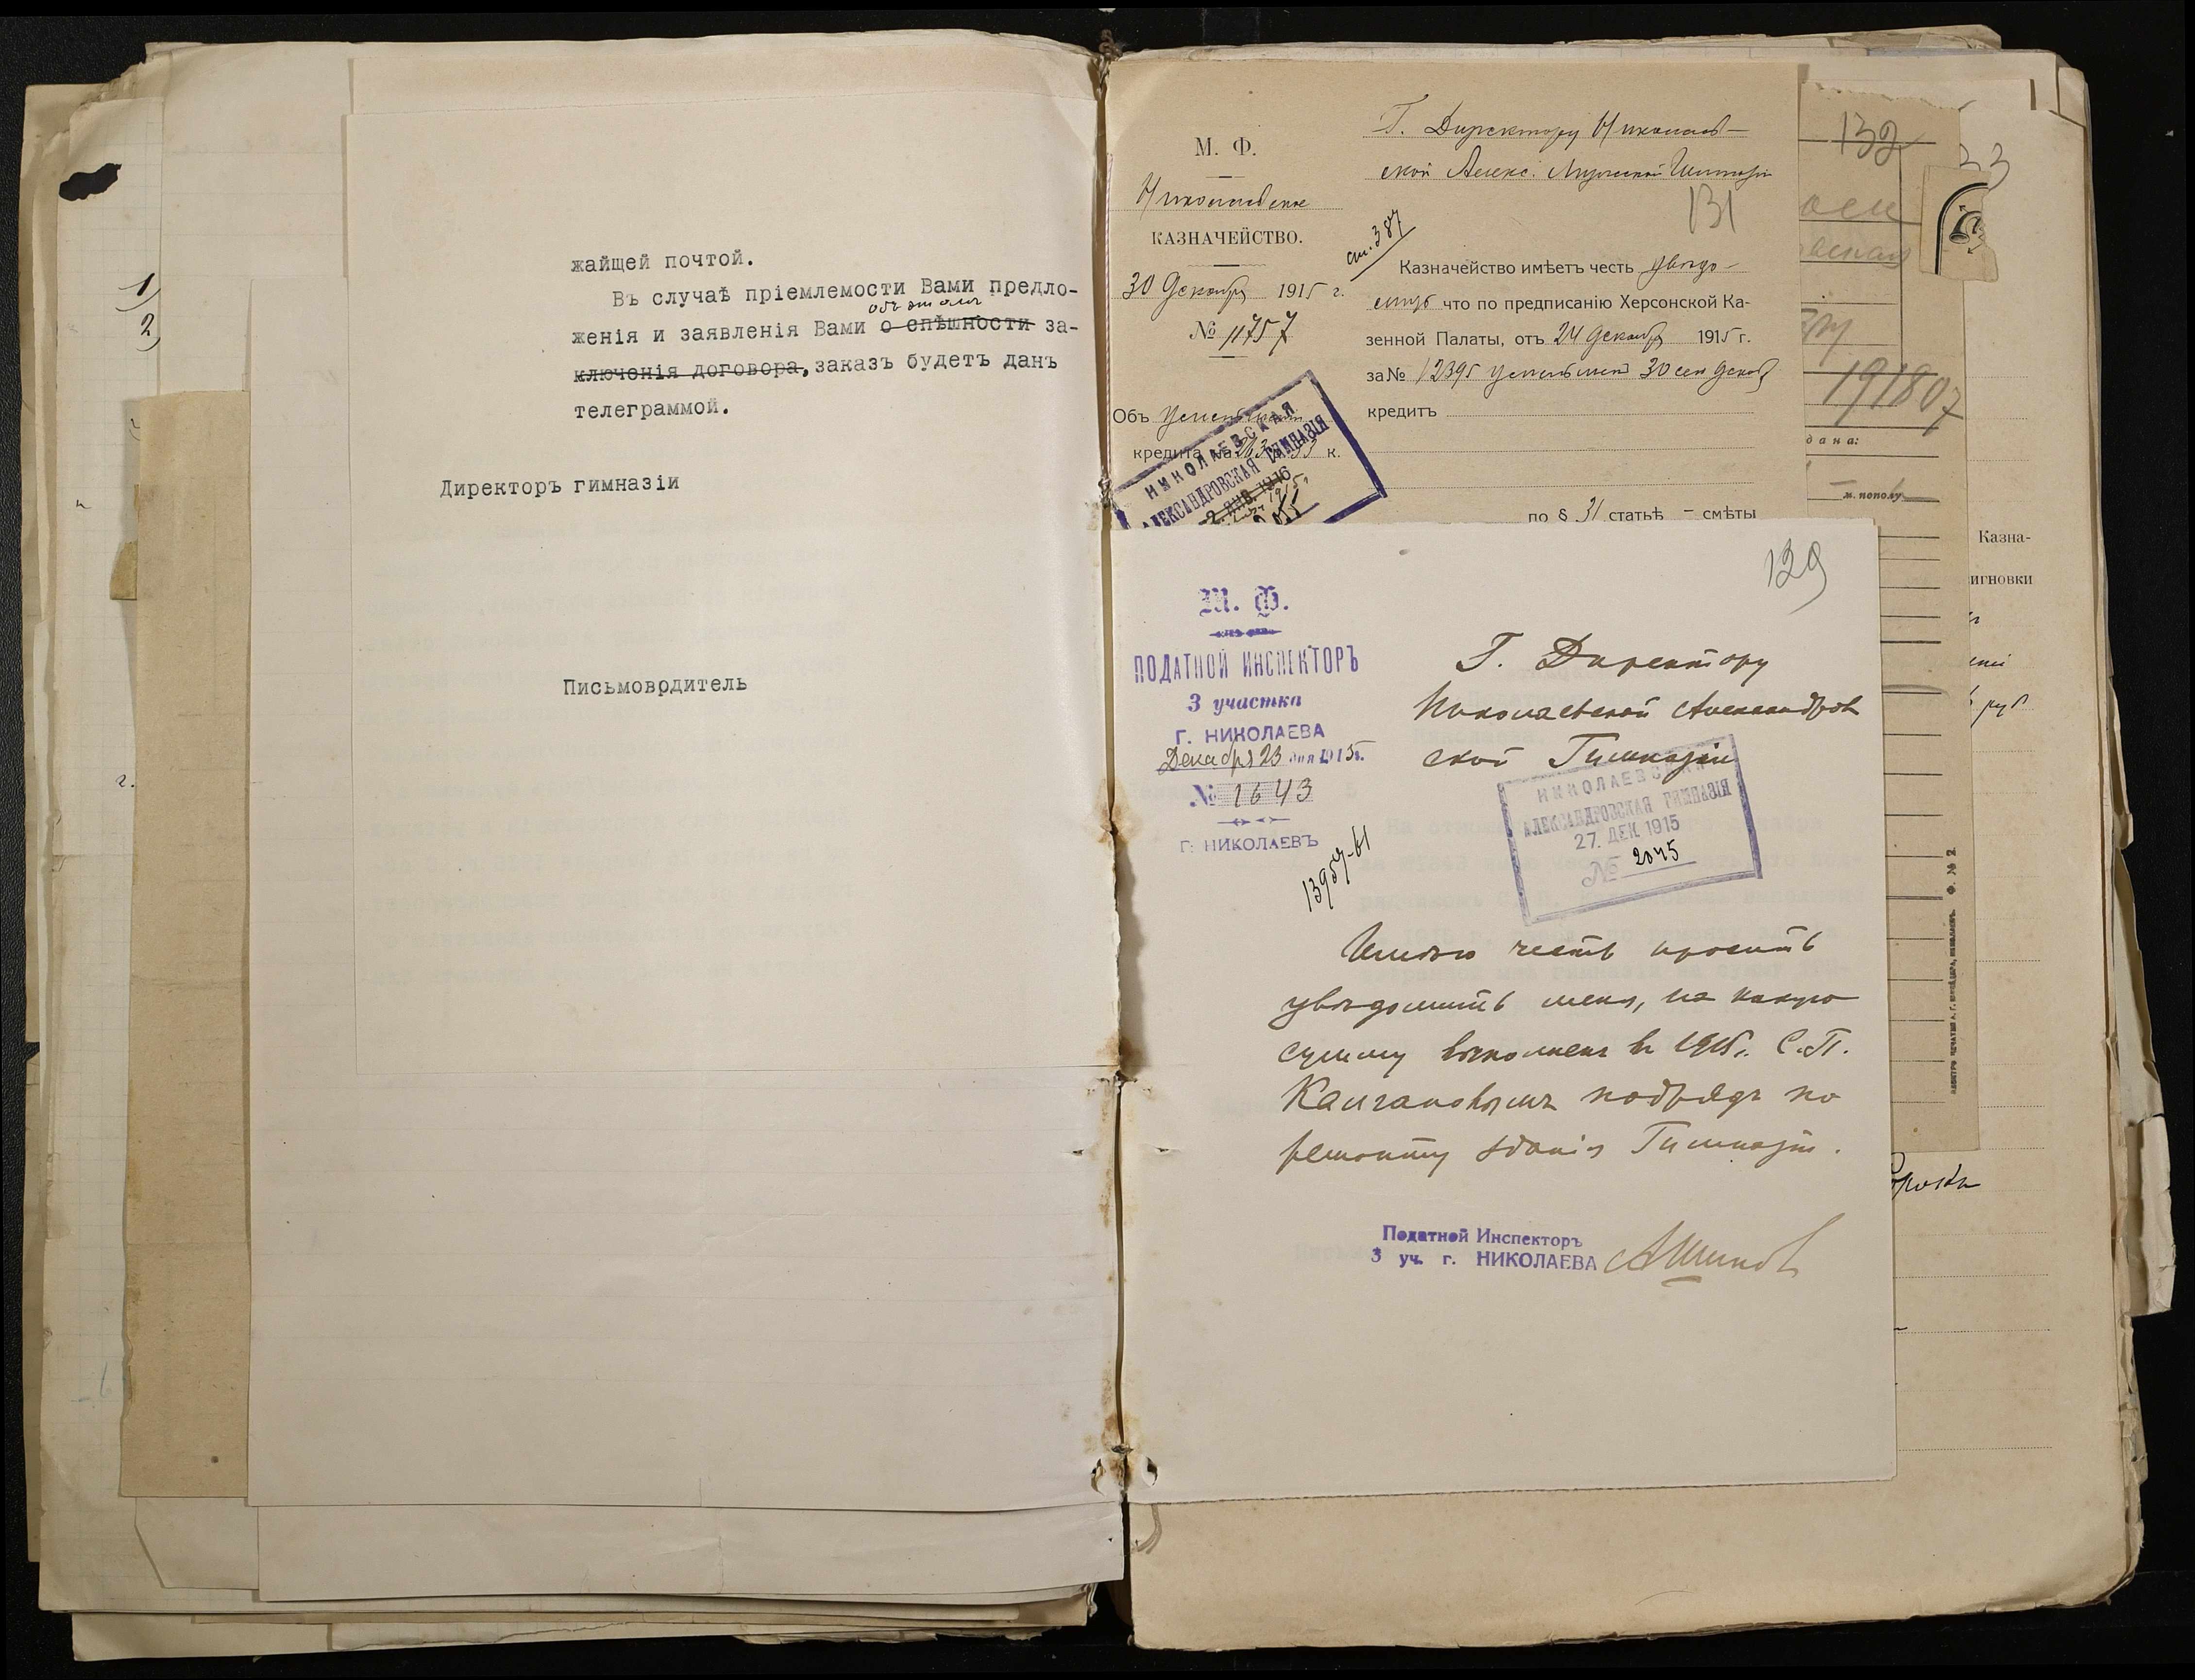 жайщей почтой.
Въ случаѣ пріемлемости Вами предло-
объ этомъ
женія и заявленія Вами о спѣшности за-
ключенія договора, заказъ будетъ данъ
телеграммой.
Директоръ гимназіи
Письмоврдитель
1)
2)
г.
М. Ф.
Николаевское
КАЗНАЧЕЙСТВО.
30 Декабря 1915 г.
№ 11757
Объ
кредита на к.
НИКОЛАЕВСКАЯ
АЛЕКСАНДРОВСКАЯ ГИМНАЗІЯ
2 ЯНВ. 1916
Г. Директору Николаев-
ской Алекс. Мужской Гимназіи
131
ст. 387
Казначейство имѣетъ честь увѣдо-
мить что по предписанію Херсонской Ка-
зенной Палаты, отъ 24 декабря 1915 г.
за № 12395 30 сего декаб
кредитъ
по § 31 статьѣ - смѣты
132
191807
дана:
м. пополу
Казна-
игновки
руб
АЕВСКАЯ
Ф. № 2.
129
М. Ф.
ПОДАТНОЙ ИНСПЕКТОРЪ
3 участка
Г. НИКОЛАЕВА
Декабря 23 дня 1915 г.
№ 1643
Г. НИКОЛАЕВЪ
Г. Директору
Николаевской Александров
ской Гимназіи
НИКОЛАЕВСКАЯ
АЛЕКСАНДРОВСКАЯ ГИМНАЗІЯ
27. ДЕК. 1915
№ 2045
1395ч-61
Имѣю честь просить
увѣдомить меня, на какую
сумму выполненъ въ 1915 г. С. П.
Камгановымъ подрядъ по
ремонту зданія Гимназіи.
Податной Инспекторъ
3 уч. г. НИКОЛАЕВА